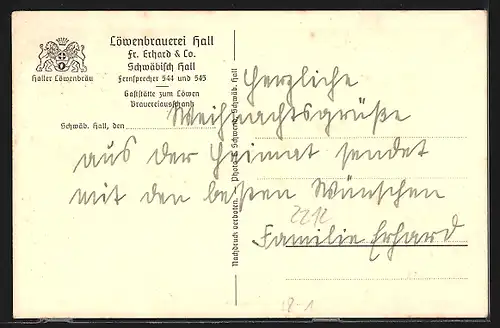 Löwenbrauerei Hall
Fr. Erhard & Co.
Schwäbisch Hall
Fernsprecher 544 und 545
Gaststätte zum Löwen
Brauereiausschank
Haller Löwenbräu
Schwäb. Hall, den
Herzliche
Weihnachtsgrüße
aus der Heimat sendet
mit den besten Wünschen
Familie Erhard
2212
Nachdruck verboten. — Photo E. Schwend, Schwäb. Hall